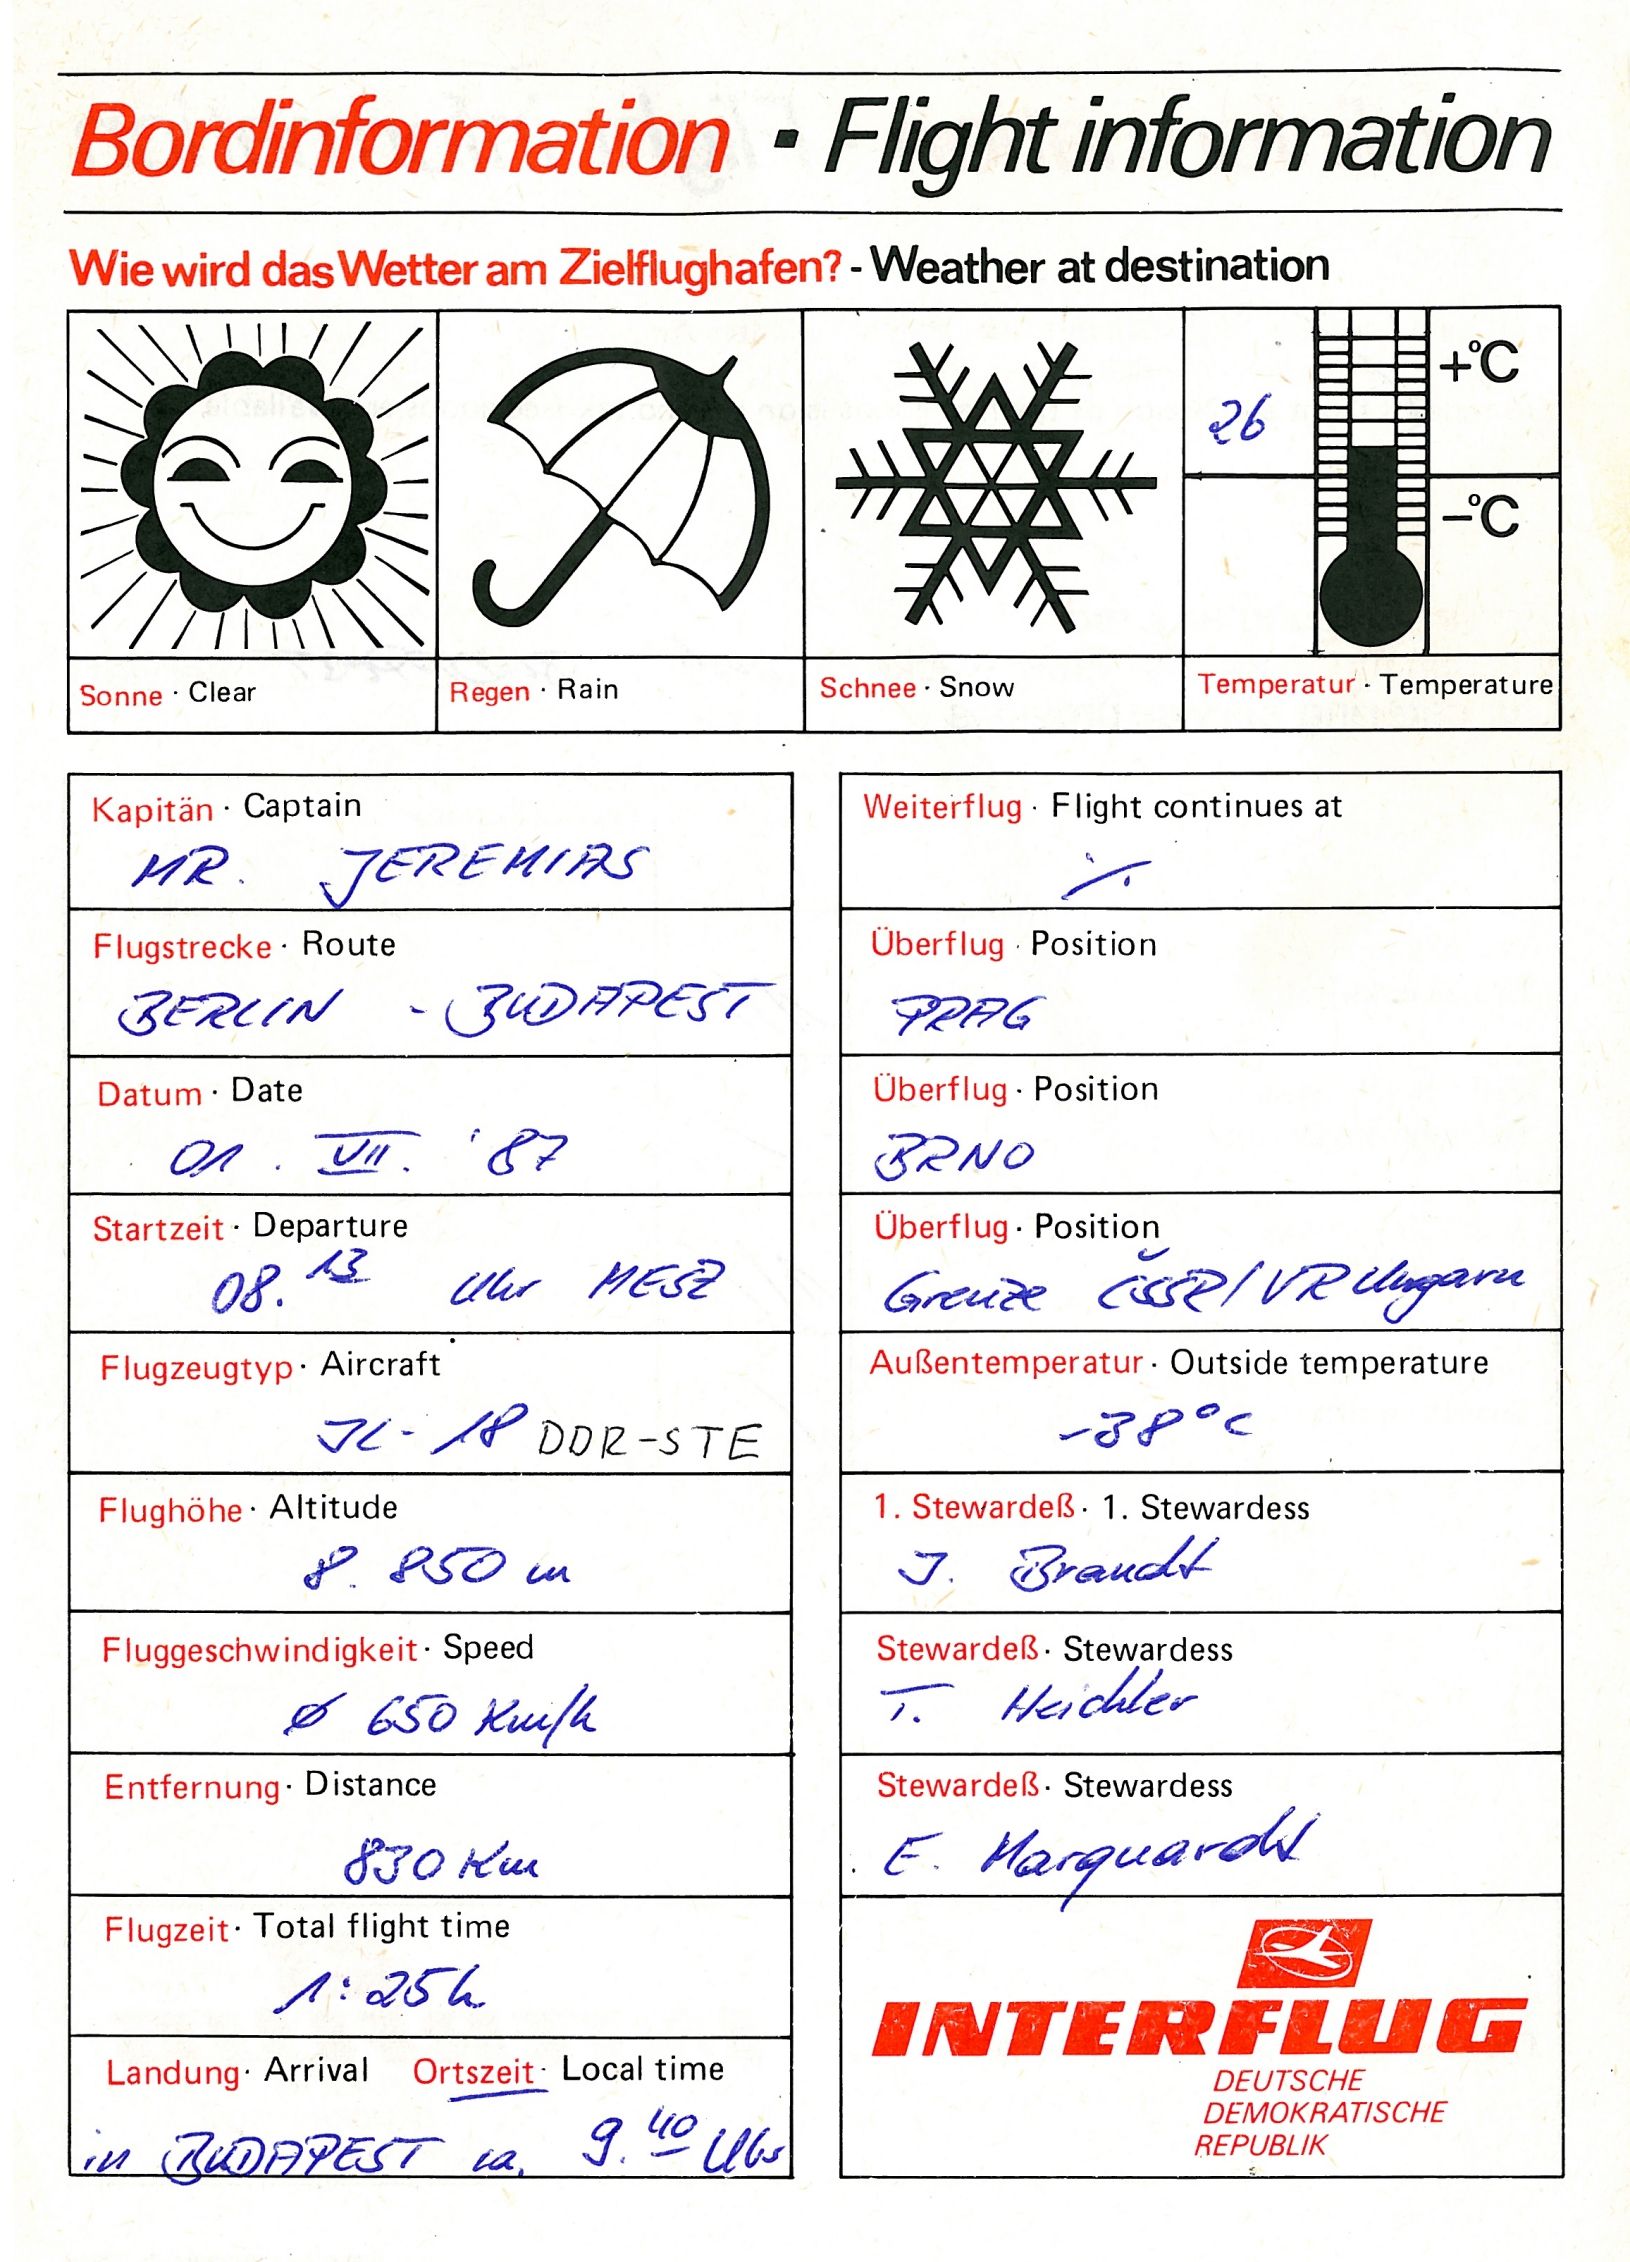 Bordinformation · Flight information
Wie wird das Wetter am Zielflughafen? - Weather at destination
+°C
26
-°C
Sonne · Clear
Regen · Rain
Schnee · Snow
Temperatur · Temperature
Kapitän · Captain
MR. JEREMIAS
Flugstrecke · Route
BERLIN - BUDAPEST
Datum · Date
01. VII. '87
Startzeit · Departure
08.13 Uhr MESZ
Flugzeugtyp · Aircraft
IL-18 DDR-STE
Flughöhe · Altitude
8.850 m
Fluggeschwindigkeit · Speed
ø 650 Km/h
Entfernung · Distance
830 Km
Flugzeit · Total flight time
1:25h
Landung · Arrival Ortszeit · Local time
in BUDAPEST ca. 9.40 Uhr
Weiterflug · Flight continues at
./.
Überflug · Position
PRAG
Überflug · Position
BRNO
Überflug · Position
Grenze ČSSR/VR Ungarn
Außentemperatur · Outside temperature
-38°C
1. Stewardeß · 1. Stewardess
I. Brandt
Stewardeß · Stewardess
T. Heichler
Stewardeß · Stewardess
E. Marquardt
INTERFLUG
DEUTSCHE
DEMOKRATISCHE
REPUBLIK